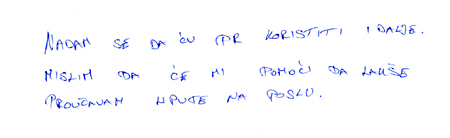 NADAM SE DA ĆU PR KORISTITI I DALJE.
MISLIM DA ĆE MI POMOĆI DA LAKŠE
PROUČAVAM UPUTE NA POSLU.